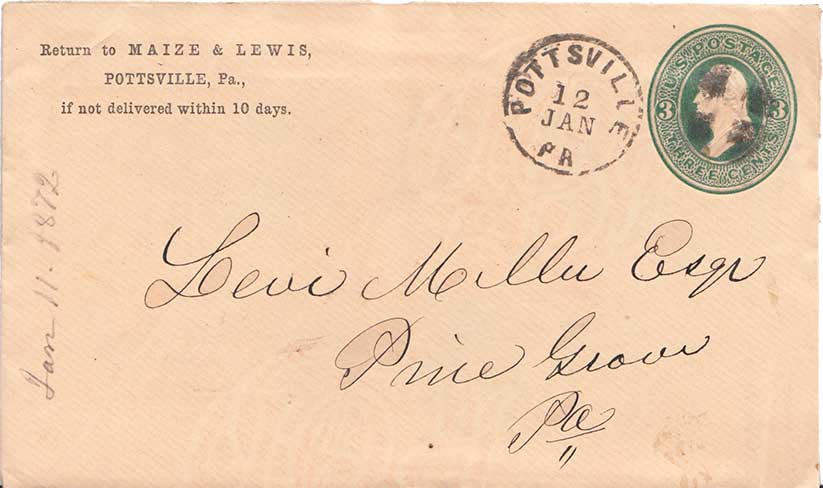 Return to MAIZE & LEWIS,
POTTSVILLE, Pa.,
if not delivered within 10 days.
POTTSVILLE
12
JAN
PA
U.S. POSTAGE
3 3
THREE CENTS
Levi Miller Esqr
Pine Grove
Pa
Jan 11. 1872